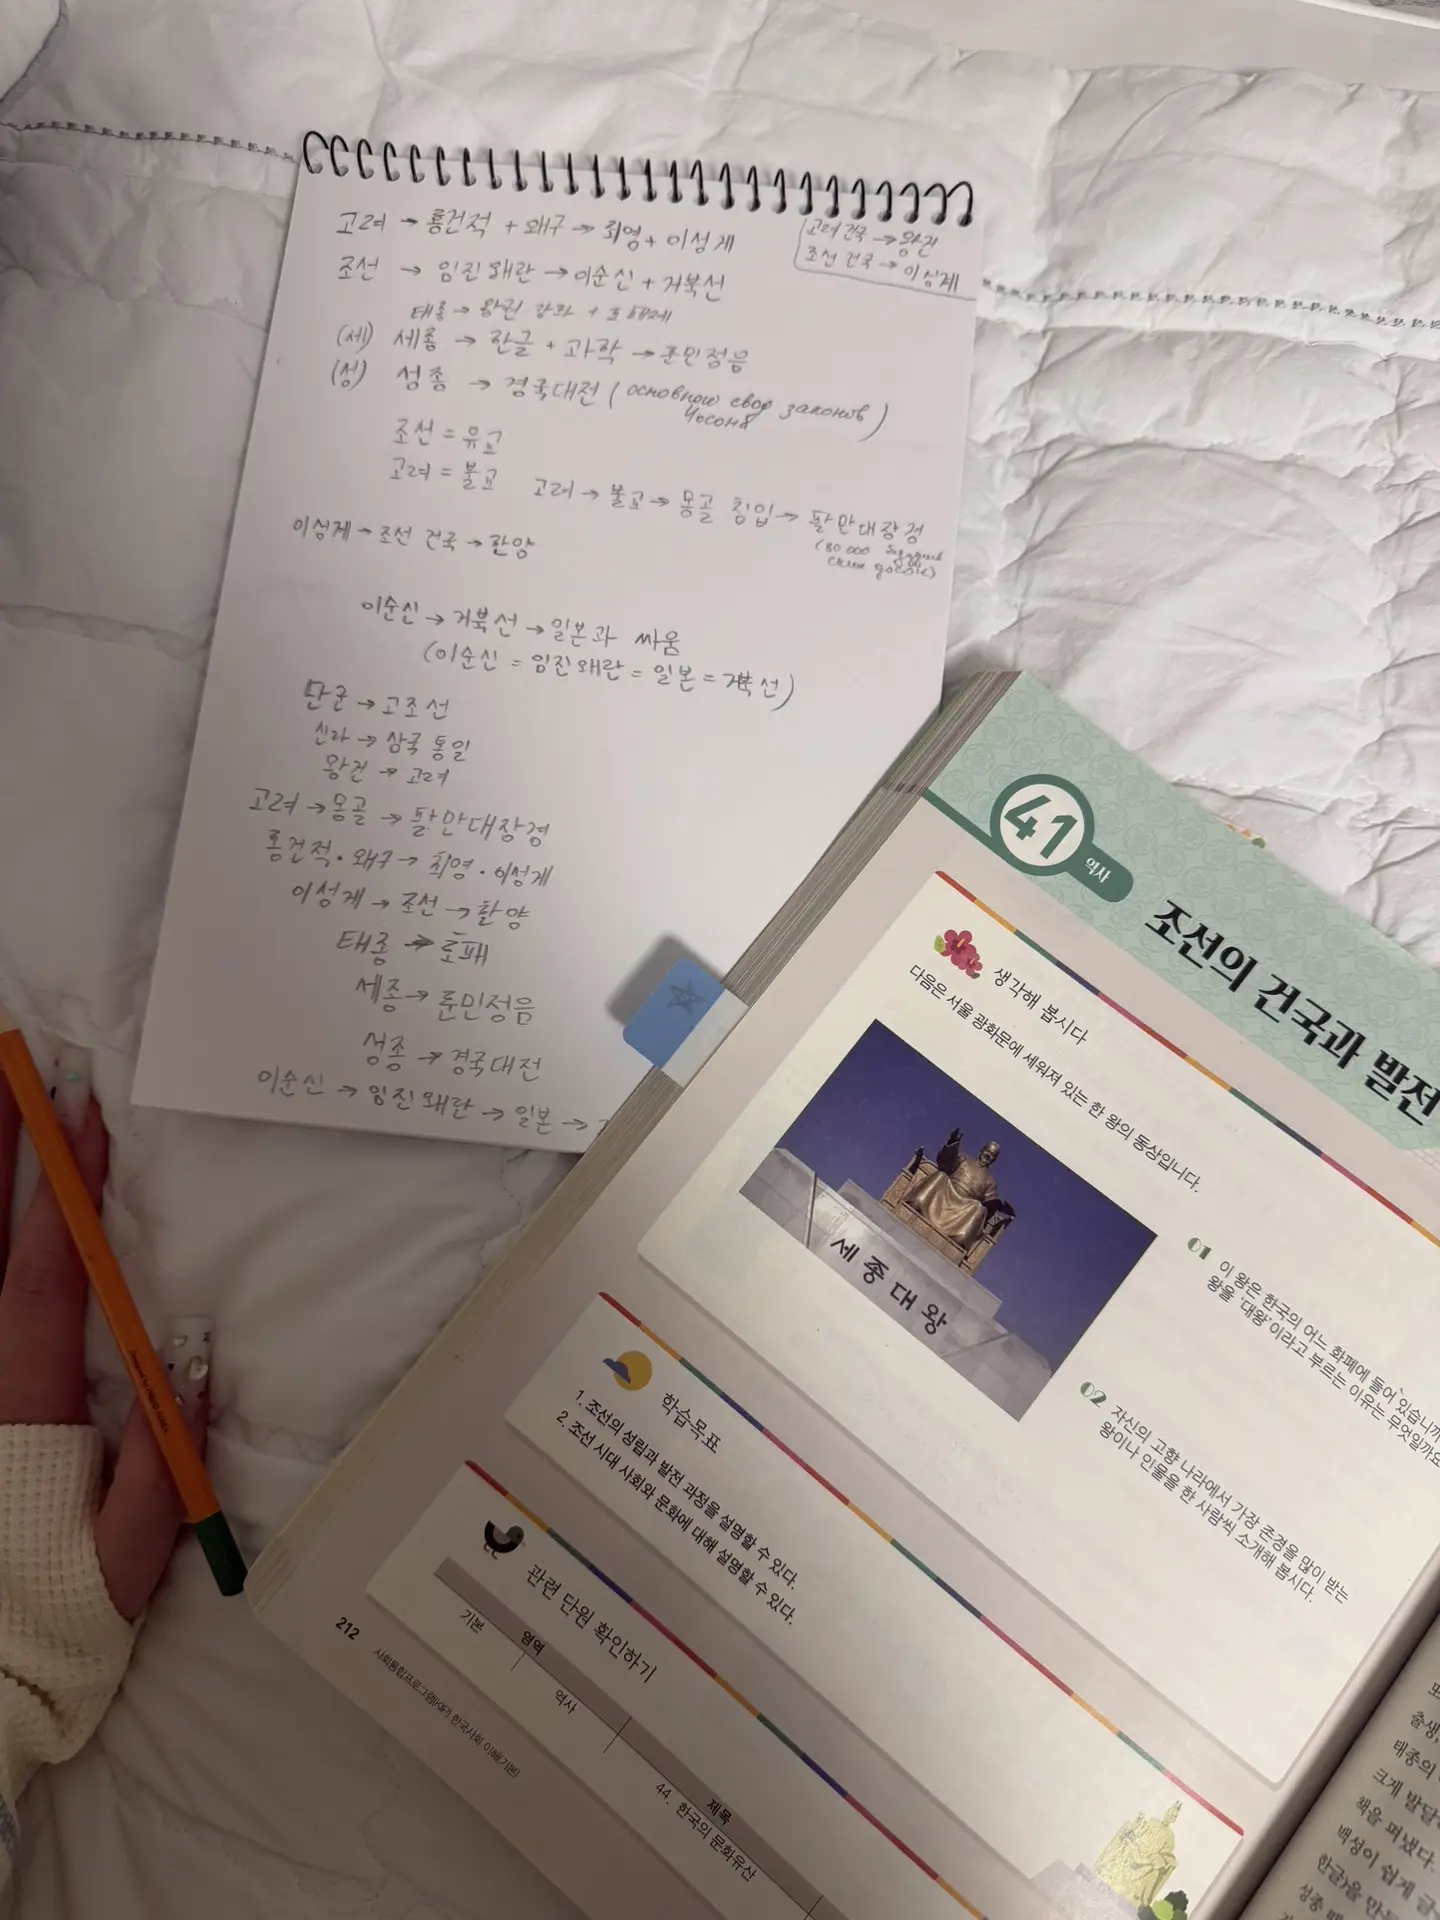 고려 → 홍건적 + 왜구 → 최영 + 이성계
고려 건국 → 왕건
조선 건국 → 이성계
조선 → 임진왜란 → 이순신 + 거북선
태종 → 왕권 강화 +
(세) 세종 → 한글 + 과학 → 훈민정음
(성) 성종 → 경국대전 ( основной свод законов
Чосона )
조선 = 유교
고려 = 불교
고려 → 불교 → 몽골 침입 → 팔만대장경
(80 000
이성계 → 조선 건국 → 한양
이순신 → 거북선 → 일본과 싸움
(이순신 = 임진왜란 = 일본 = 거북선)
단군 → 고조선
신라 → 삼국 통일
왕건 → 고려
고려 → 몽골 → 팔만대장경
홍건적 · 왜구 → 최영 · 이성계
이성계 → 조선 → 한양
태종 → 호패
세종 → 훈민정음
성종 → 경국대전
이순신 → 임진왜란 → 일본 →
41 역사
조선의 건국과 발전
생각해 봅시다
다음은 서울 광화문에 세워져 있는 한 왕의 동상입니다.
세종대왕
01 이 왕은 한국의 어느 화폐에 들어 있습니까
왕을 '대왕'이라고 부르는 이유는 무엇일까요
02 자신의 고향 나라에서 가장 존경을 많이 받는
왕이나 인물을 한 사람씩 소개해 봅시다.
학습목표
1. 조선의 성립과 발전 과정을 설명할 수 있다.
2. 조선 시대 사회와 문화에 대해 설명할 수 있다.
관련 단원 확인하기
영역 제목
기본 역사 44. 한국의 문화유산
212 사회통합프로그램(KIIP) 한국사회 이해(기본)
출생,
태종의
크게 발달
책을 펴냈다.
백성이 쉽게 글
한글)을 만
성종 때